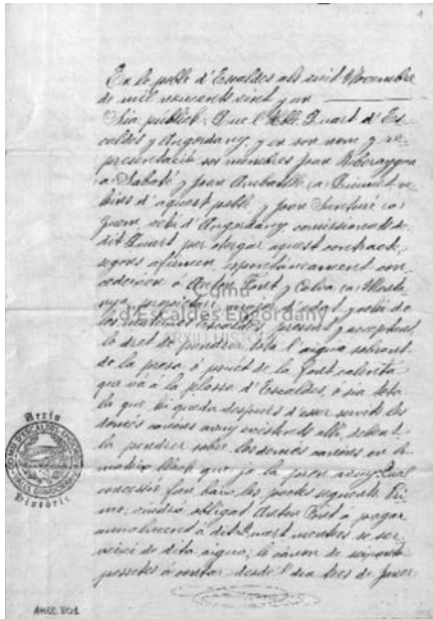 En lo poble d'Escaldes als vint Novembre
de mil noucents vint y un
Sia públich: Que l' Hble. Quart d'Es-
caldes y Angordany, y en son nom y re-
presentació sos membres Joan Riberaygua
(a) Sabaté y Joan Aubarell (a) ve-
hins d'aquest poble y Joan Santuré (a)
vehi d'Angordany, comissionats de
dit Quart per otorgar aquest contracte,
segons afirmen, espontáneament con-
cedeixen á Anton Font y Calva (a)
propietari, major d'edat, y vehi de
las Escaldes, present y acceptant,
lo dret de pendrer tota l'aigua sobrant
de la presa, ó pouet de la font calenta
que va a la plassa d'Escaldes, ó sia tota
la que hi queda despues d'esser servits los
demés canons avuy existents allí, debent
la pendrer sobre los demes canons en lo
mateix lloch que ja la pren avuy. Qual
concessió fan baix los pactes seguents: Pri-
mo, vindrá obligat Anton Font á pagar
anualment á dit Quart mentres se ser-
veixi de dita aigua, lo cánon de
pessetes á contar desde l dia tres de Janer
Comú
d'Escaldes-Engordany
ARXIU HISTÒRIC
Arxiu
COMÚ D'ESCALDES-ENGORDANY
Històric
AHCE 801
1